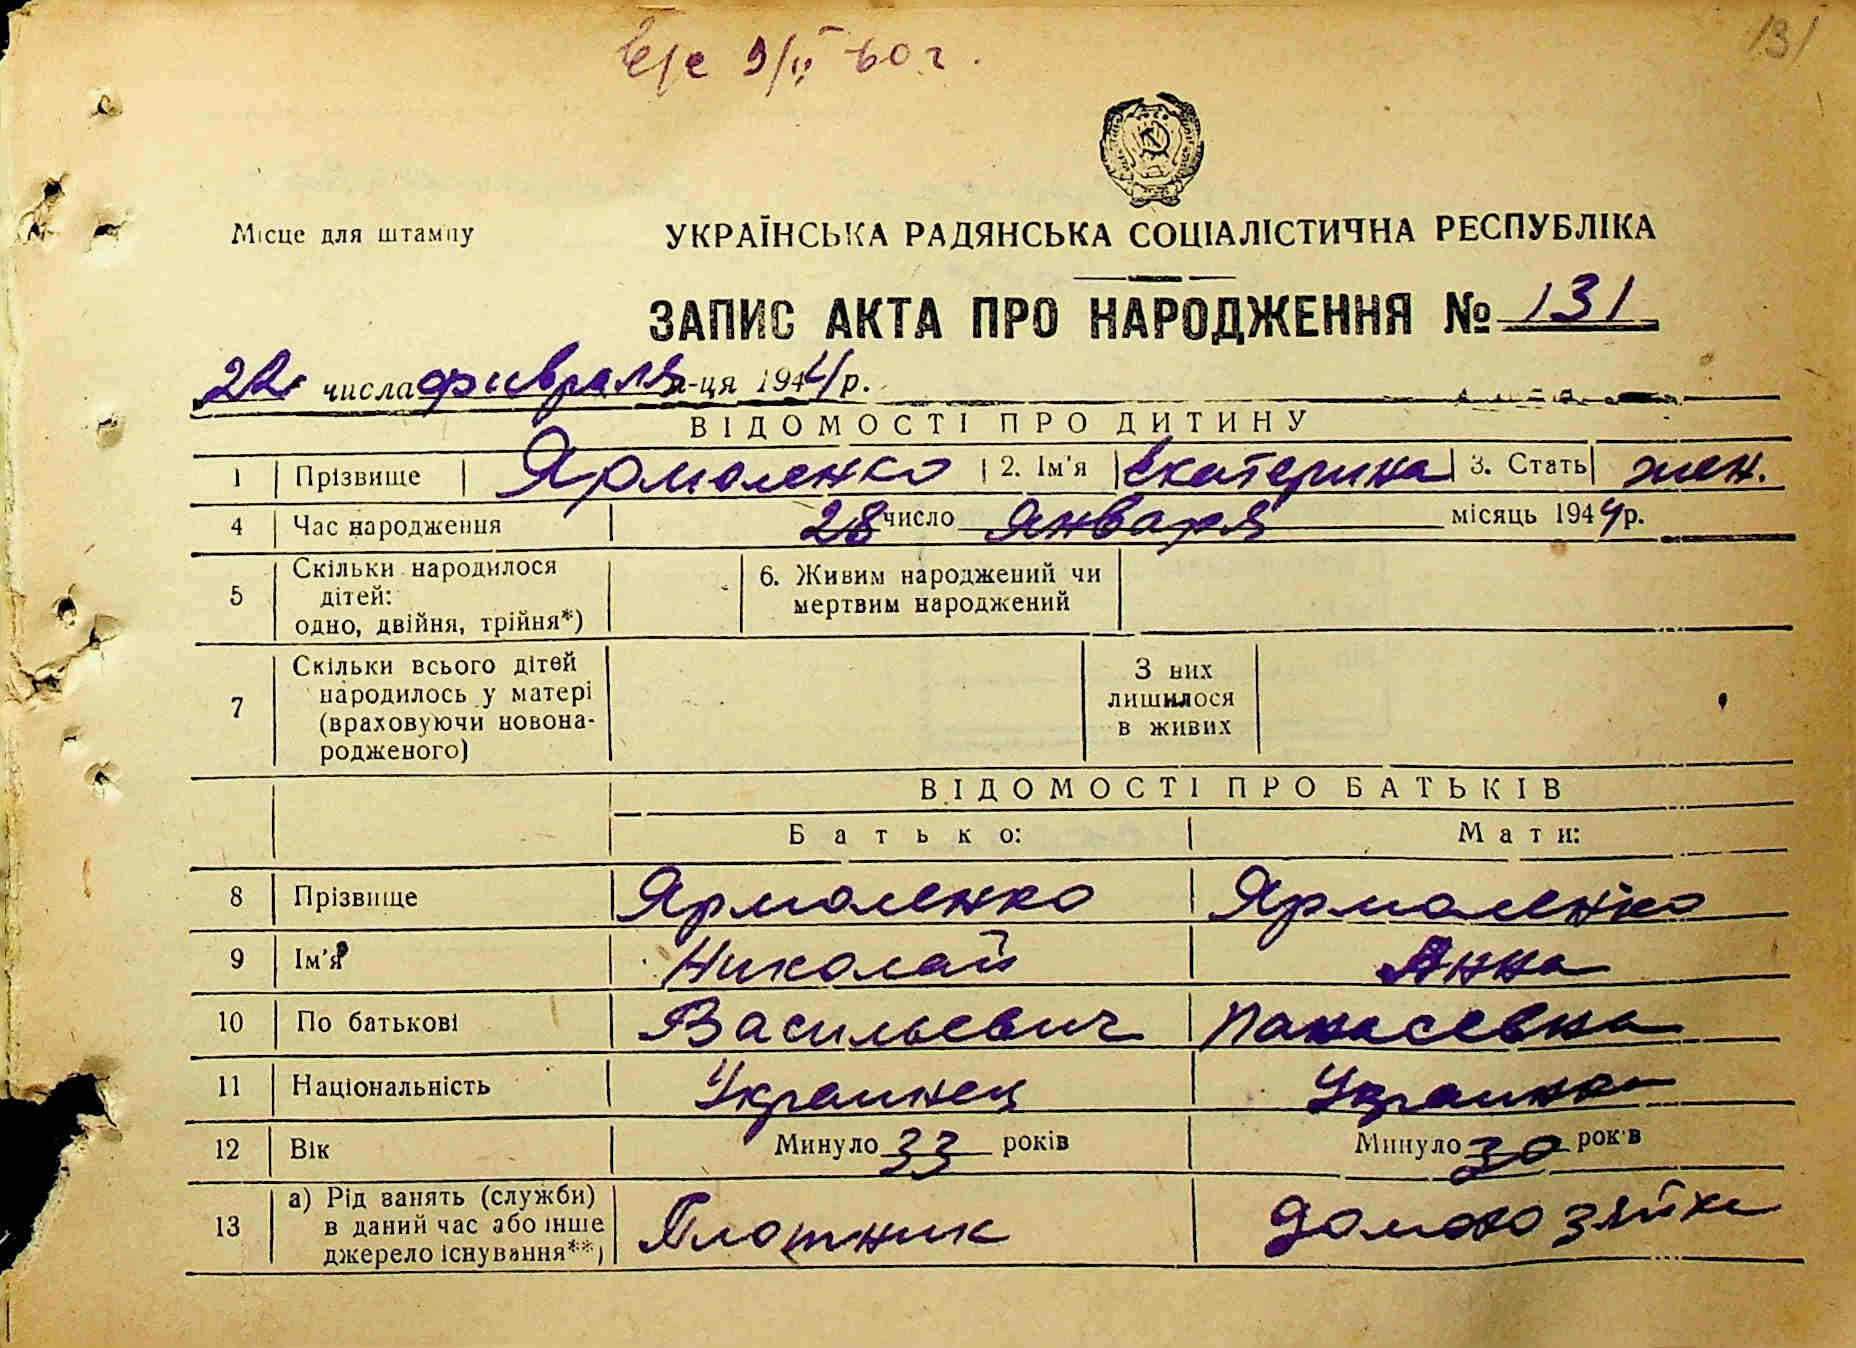 131
9/II 60 г.
Місце для штампу
УКРАЇНСЬКА РАДЯНСЬКА СОЦІАЛІСТИЧНА РЕСПУБЛІКА
ЗАПИС АКТА ПРО НАРОДЖЕННЯ № 131
22 числа февраля м-ця 1944 р.
ВІДОМОСТІ ПРО ДИТИНУ
1 Прізвище Ярмоленко 2. Ім'я Екатерина 3. Стать жен.
4 Час народження 28 число января місяць 1944 р.
5 Скільки народилося дітей: одно, двійня, трійня*) 6. Живим народжений чи мертвим народжений
7 Скільки всього дітей народилось у матері (враховуючи новонародженого) З них лишилося в живих
ВІДОМОСТІ ПРО БАТЬКІВ
Батько: Мати:
8 Прізвище Ярмоленко Ярмоленко
9 Ім'я Николай Анна
10 По батькові Васильевич Панасевна
11 Національність Украинец Украинка
12 Вік Минуло 33 років Минуло 30 років
13 а) Рід занять (служби) в даний час або інше джерело існування**) Плотник Домохозяйка